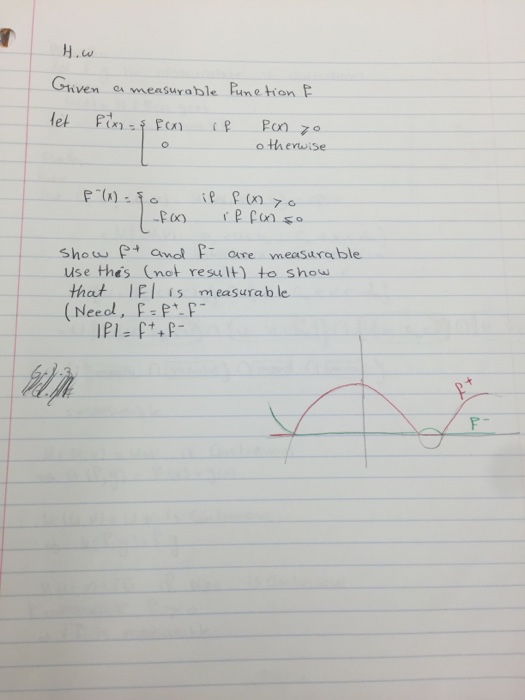 H.w
Given a measurable function f
let f⁺(x) = { f(x) if f(x) ≥ 0
0 otherwise
f⁻(x) = { 0 if f(x) > 0
-f(x) if f(x) ≤ 0
show f⁺ and f⁻ are measurable
Use this (not result) to show
that |f| is measurable
(Need, f = f⁺ - f⁻
|f| = f⁺ + f⁻
f⁺
f⁻